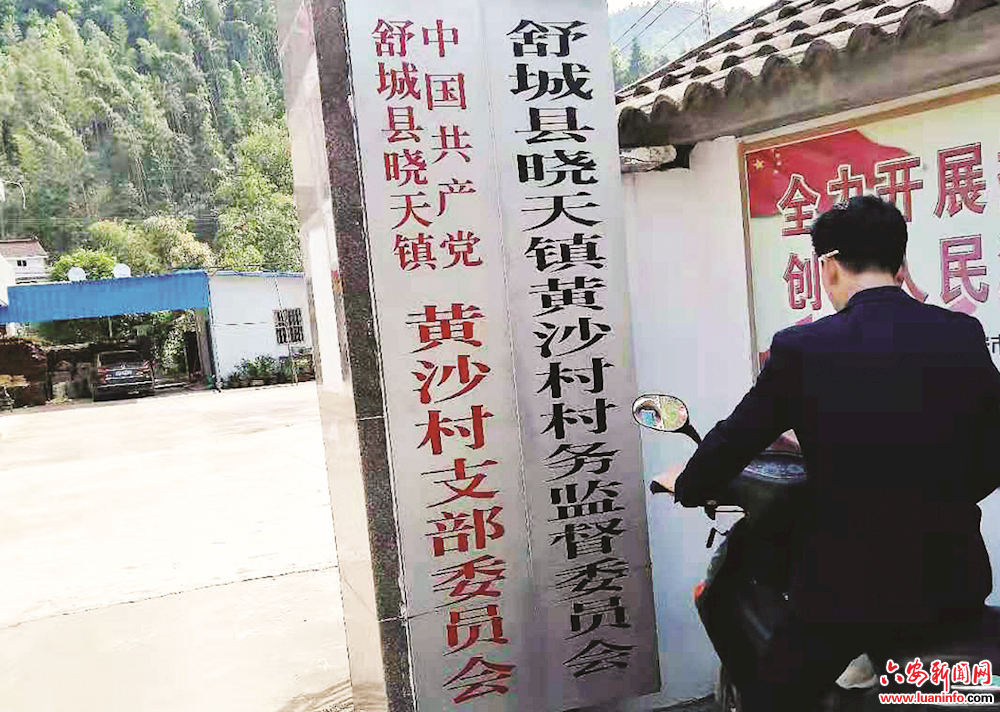 中国共产党
舒城县晓天镇
黄沙村支部委员会
舒城县晓天镇黄沙村村务监督委员会
全力开展
创
人民
市
六安新闻网
www.luaninfo.com